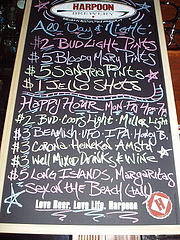 HARPOON
BREWERY
ALL Day & Night:
#2 BUD Light Pints
$5 Bloody Mary Pints
$5 SANGRIA Pints
$1 Jello Shots
Happy Hour Mon-Fri 4pm-7pm
#2 BUD-COORS Light-Miller Light
#3 BEAMISH-UFO-IPA-Harp B.
#3 CORONA Heineken Amstel
#3 Well Mixed Drinks & Wine
#5 LONG ISLANDS, MARGARITAS
Sex on the Beach (tall)
Love Beer. Love Life. Harpoon